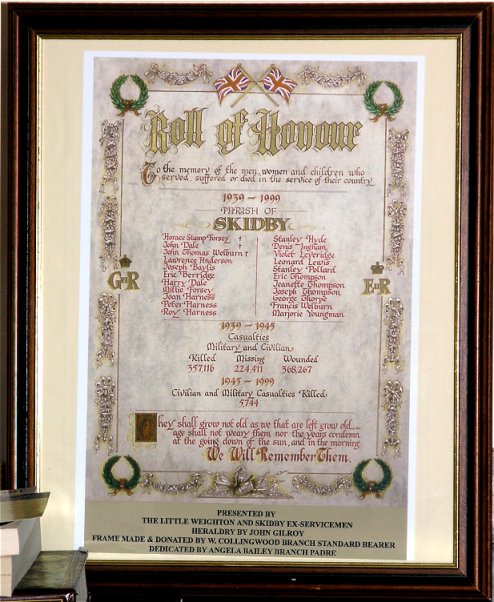 Roll of Honour
To the memory of the men, women and children who
served, suffered or died in the service of their country
1939 - 1999
PARISH OF
SKIDBY
Horace Stamp Forsey †
John Dale †
John Thomas Welburn †
Lawrence Anderson
Joseph Baylis
Eric Berridge
Harry Dale
Millie Forsey
Jean Harness
Peter Harness
Roy Harness
Stanley Hyde
Denis Ingham
Violet Leveridge
Leonard Lewis
Stanley Pollard
Eric Thompson
Jeanette Thompson
Joseph Thompson
George Thorpe
Francis Welburn
Marjorie Youngman
GR
ER
1939 - 1945
Casualties
Military and Civilian
Killed Missing Wounded
357,116 224,411 368,267
1945 - 1999
Civilian and Military Casualties Killed
5744
They shall grow not old as we that are left grow old...
age shall not weary them nor the years condemn
at the going down of the sun, and in the morning
We Will Remember Them.
PRESENTED BY
THE LITTLE WEIGHTON AND SKIDBY EX-SERVICEMEN
HERALDRY BY JOHN GILROY
FRAME MADE & DONATED BY W. COLLINGWOOD BRANCH STANDARD BEARER
DEDICATED BY ANGELA BAILEY BRANCH PADRE